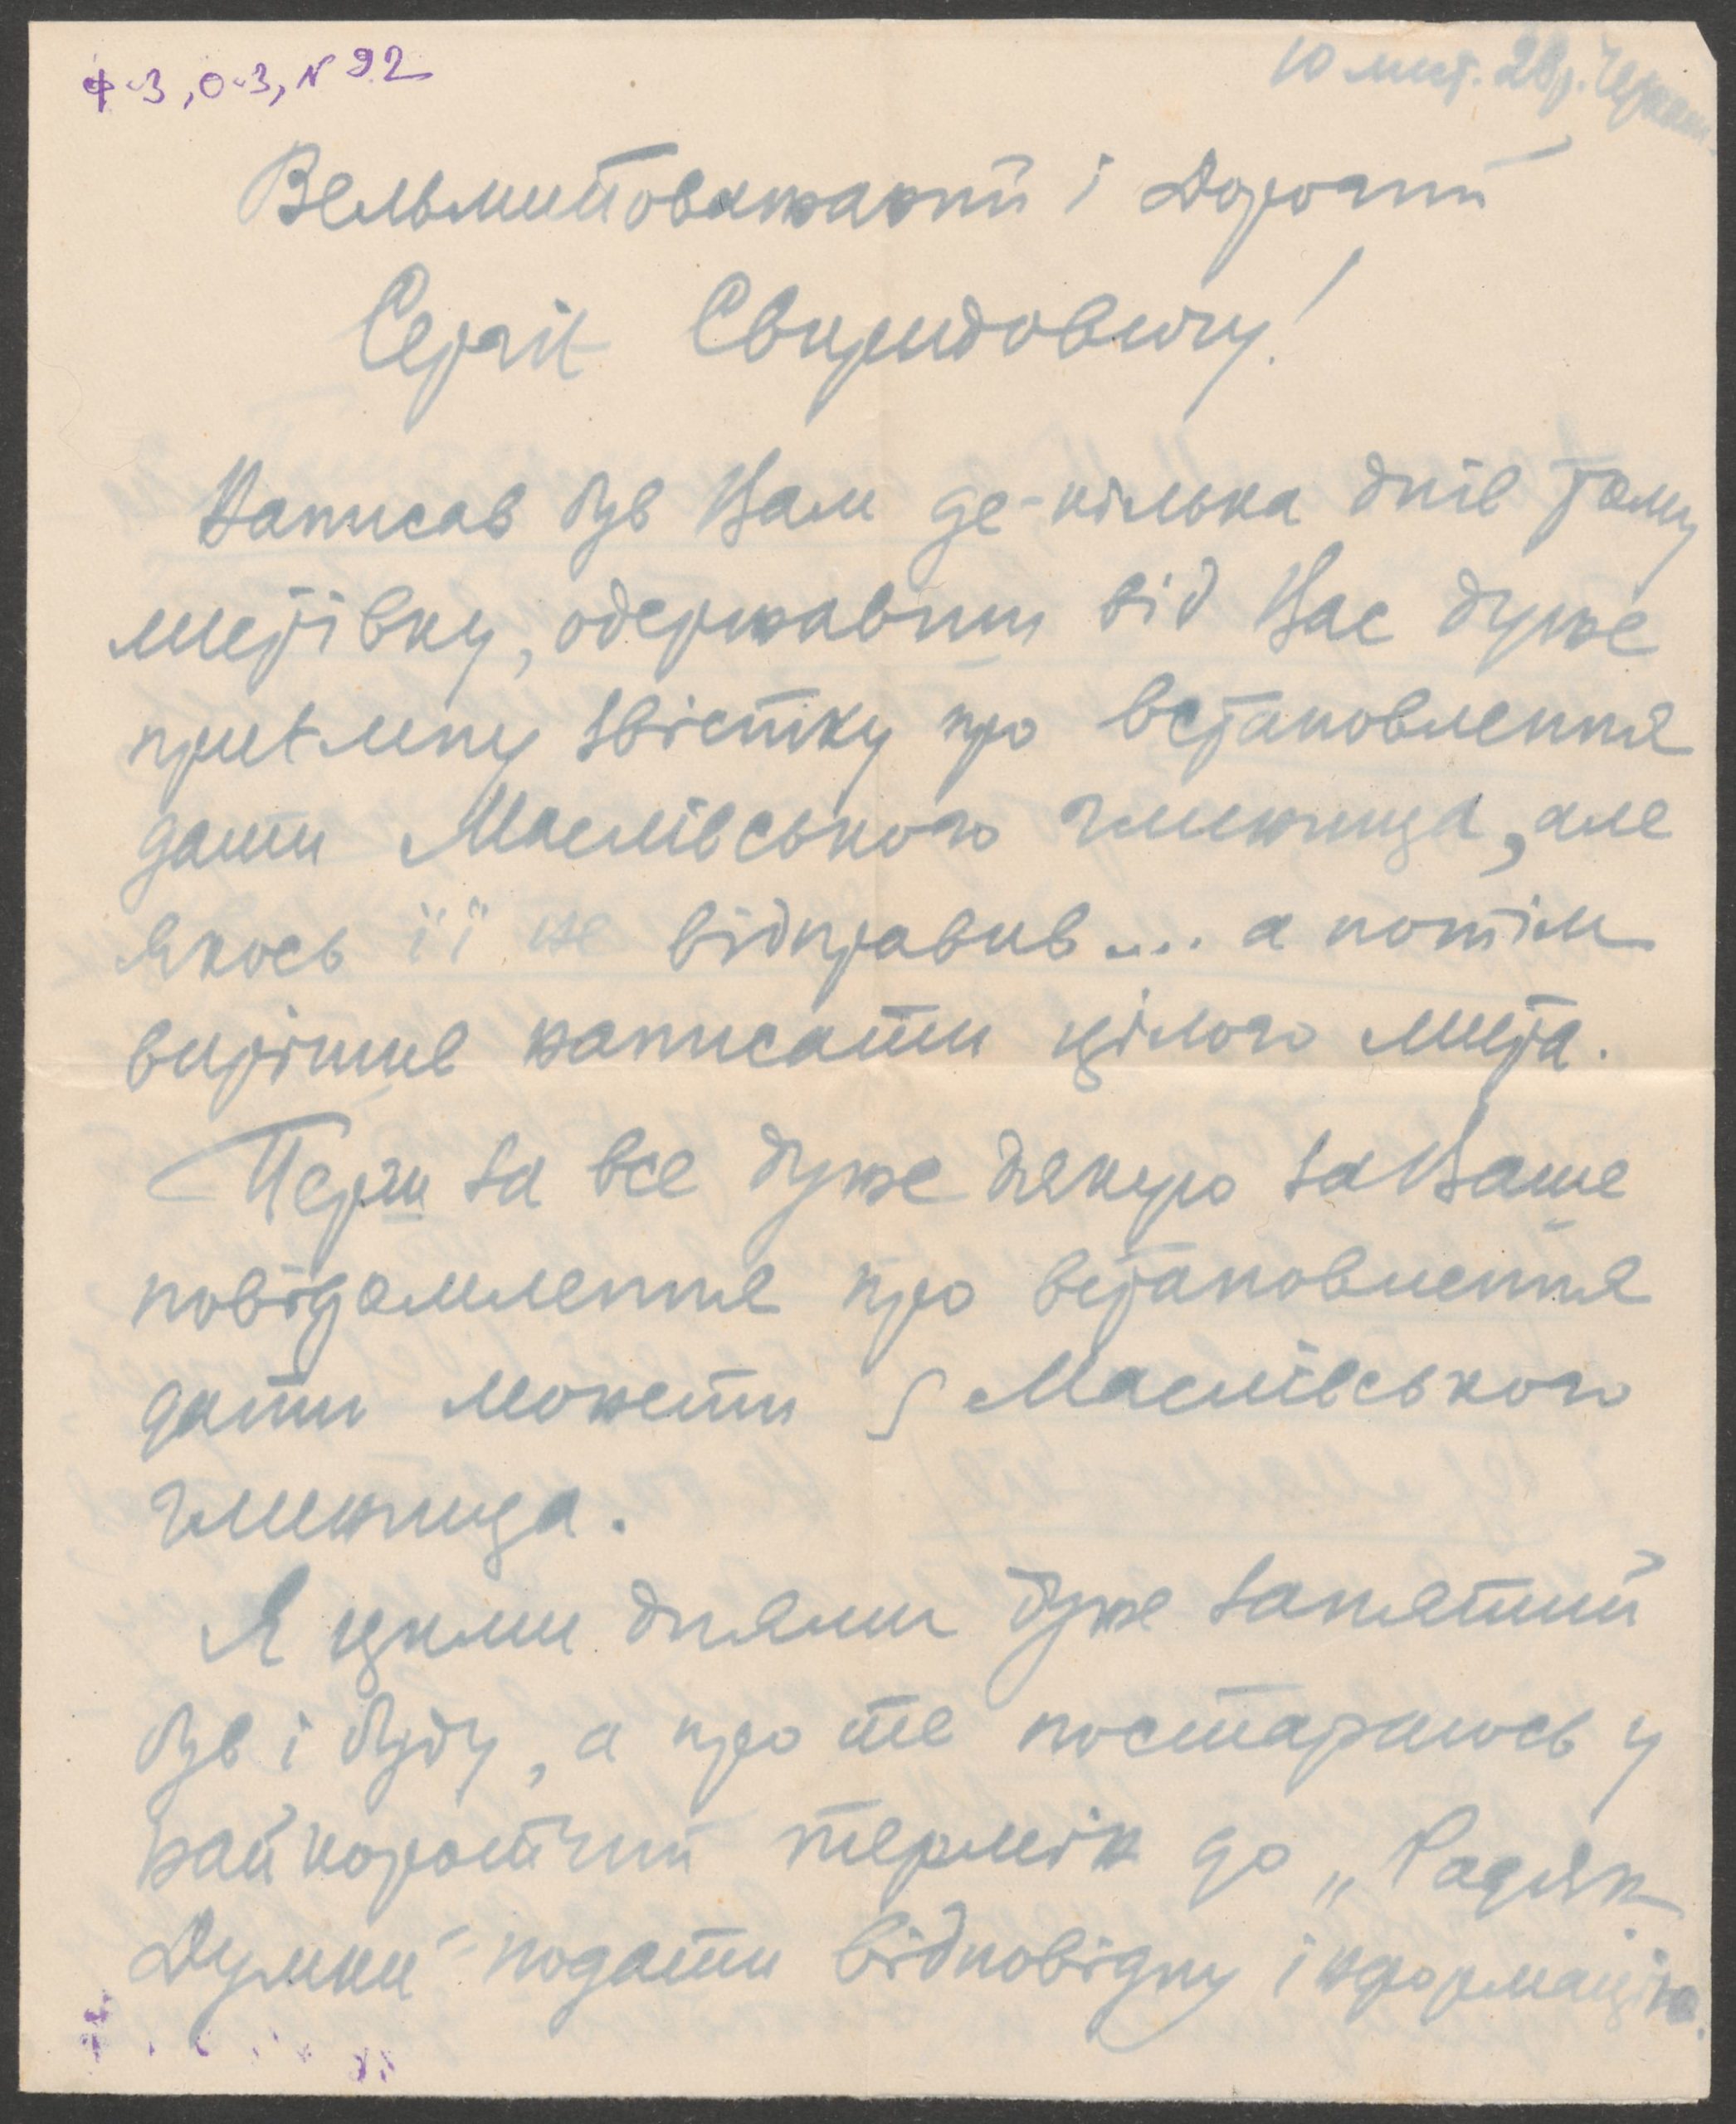 ф-3, о-3, N 92
10 лист. 28 р.
Вельмиповажаний і Дорогий
Сергій Свиридовичу!
Написав був Вам де-кілька днів тому
листівку, одержавши від Вас дуже
приємну звістку про встановлення
дати Маслівського глечища, але
якось її не відправив.... а потім
вирішив написати цілого листа.
Перш за все дуже дякую за Ваше
повідомлення про встановлення
дати монети з Маслівського
Я цими днями дуже занятий
був і буду, а про те постараюсь у
найкоротчий термін до „Радян.
Думки" подати відповідну інформацію.